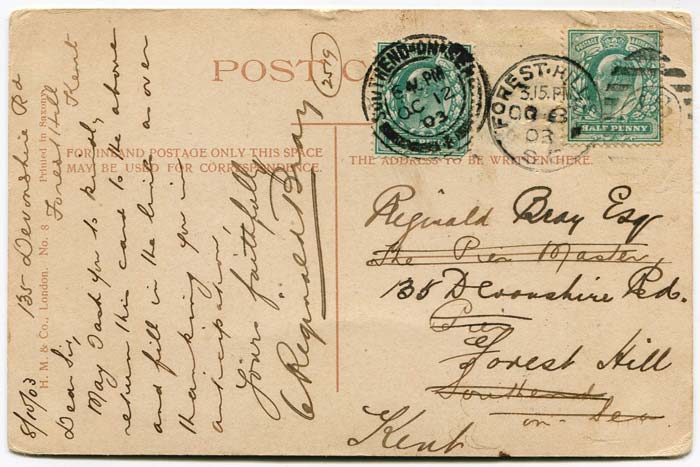 POST C
2519
SOUTHEND-ON-SEA
6 PM
OC 12
03
FOREST-HILL
3.15.PM
OC 8
03
S.E.
HALF PENNY
FOR INLAND POSTAGE ONLY THIS SPACE
MAY BE USED FOR CORRESPONDENCE.
THE ADDRESS TO BE WRITTEN HERE.
H. M. & Co., London. No. 8 Printed in Saxony.
135 Devonshire Rd
Forest Hill
Kent
8/10/03
Dear Sir,
May I ask you to kindly
return this card to the above
and fill in the lines as over
thanking you in
anticipation,
Yours faithfully
W Reginald Bray
Reginald Bray Esq
The Pier Master,
135 Devonshire Rd.
Pier
Forest Hill
Southend
on-Sea
Kent